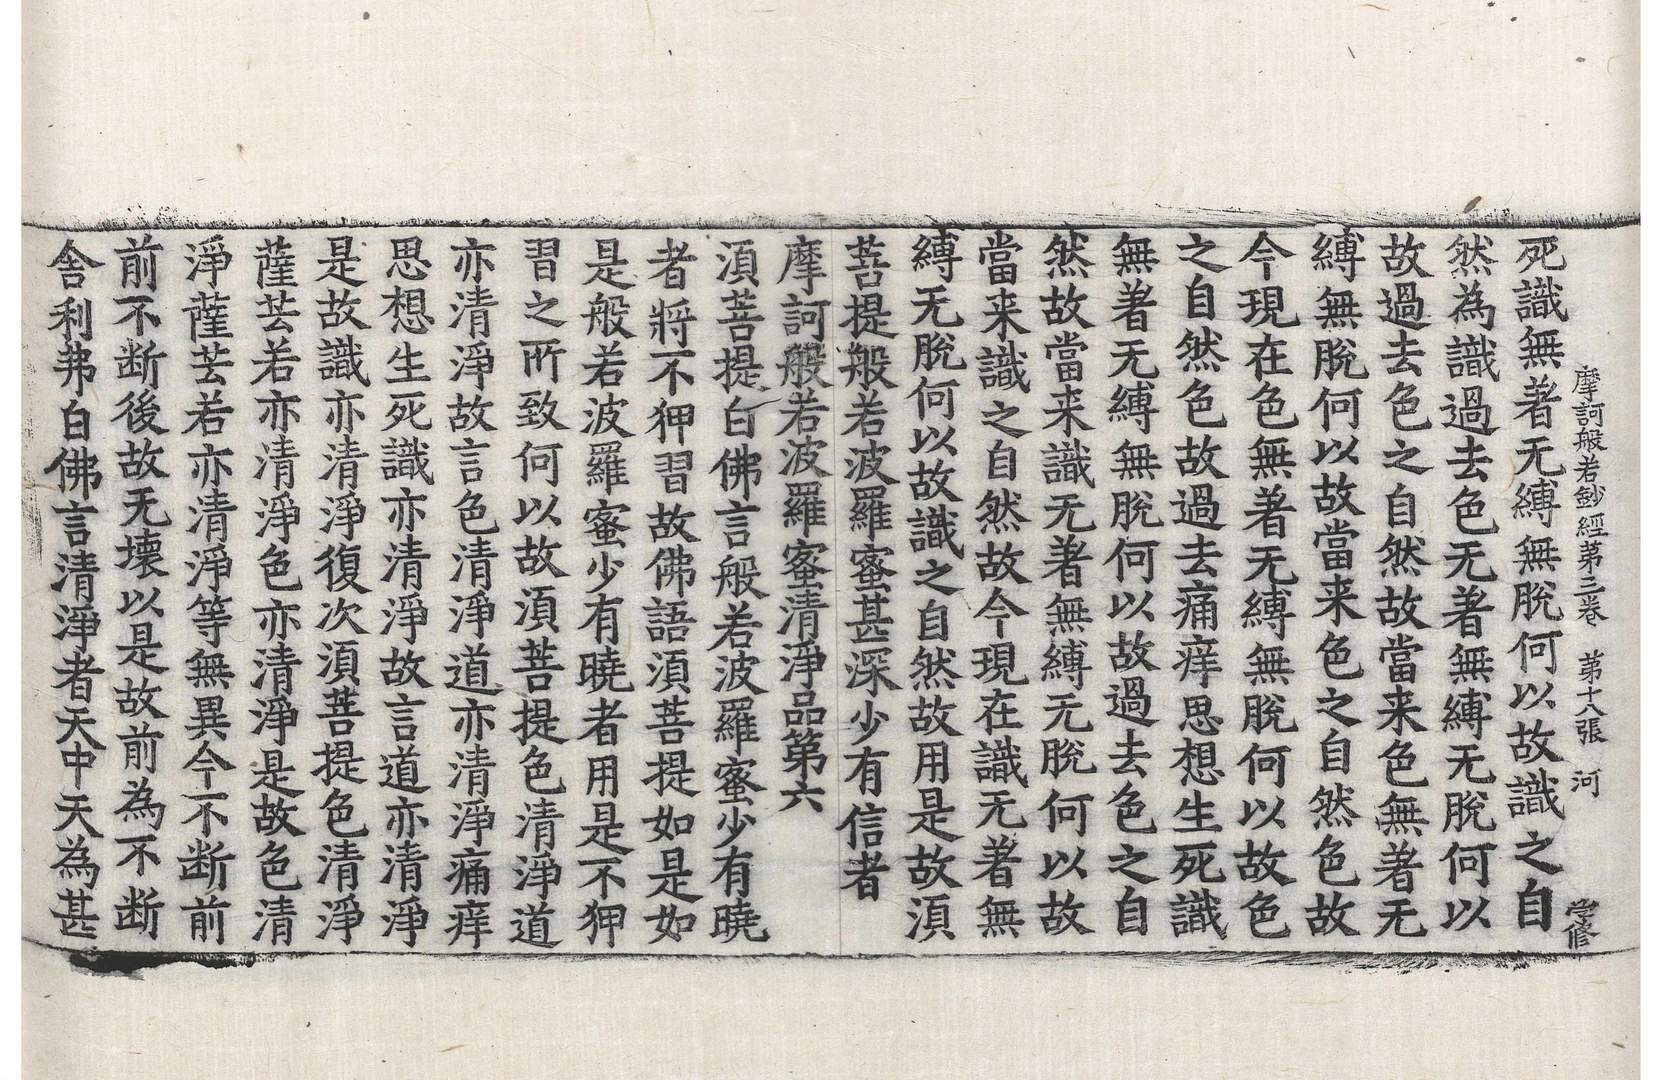 摩訶般若鈔經第三卷　第十八張　河　学修
死識無著无縛無脫何以故識之自
然為識過去色无著無縛无脫何以
故過去色之自然故當来色無著无
縛無脫何以故當来色之自然色故
今現在色無著无縛無脫何以故色
之自然色故過去痛痒思想生死識
無著无縛無脫何以故過去色之自
然故當来識无著無縛无脫何以故
當来識之自然故今現在識无著無
縛无脫何以故識之自然故用是故湏
菩提般若波羅蜜甚深少有信者
摩訶般若波羅蜜清淨品第六
湏菩提白佛言般若波羅蜜少有曉
者將不狎習故佛語湏菩提如是如
是般若波羅蜜少有曉者用是不狎
習之所致何以故湏菩提色清淨道
亦清淨故言色清淨道亦清淨痛痒
思想生死識亦清淨故言道亦清淨
是故識亦清淨復次湏菩提色清淨
薩芸若亦清淨色亦清淨是故色清
淨薩芸若亦清淨等無異今不断前
前不断後故无壞以是故前為不断
舎利弗白佛言清淨者天中天為甚